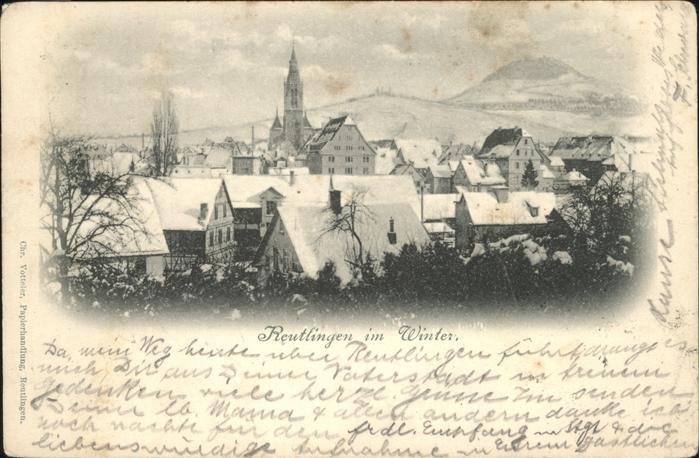 Reutlingen im Winter.
Da, mein Weg heute über Reutlingen führt, drängt es
mich Dir aus Deiner Vaterstadt in treuem
Gedenken viele herzl. Grüsse zu senden
Deiner lb. Mama & allen andern danke ich
noch für den frdl. Empfang in Stgt & die
liebenswürdige Aufnahme in Eurem gastlichen
Hause
Chr. Votteler, Papierhandlung, Reutlingen.